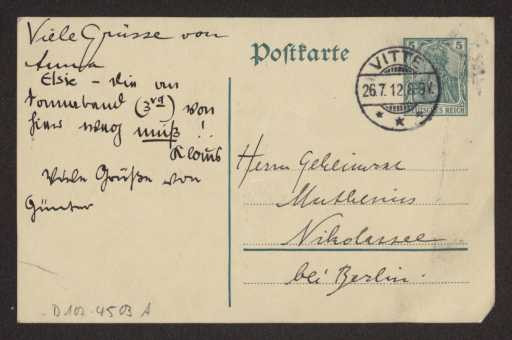 Viele Grüsse von
Anna
Elsie – die am
Sonnabend (3 Uhr) von
hier weg muß!!
Klaus
Viele Grüße von
Günter
Postkarte
5 5
VITTE
26.7.12. 8-9V.
DEUTSCHES REICH
Herrn Geheimrat
Muthesius
Nikolassee
bei Berlin.
D 102-4503 A